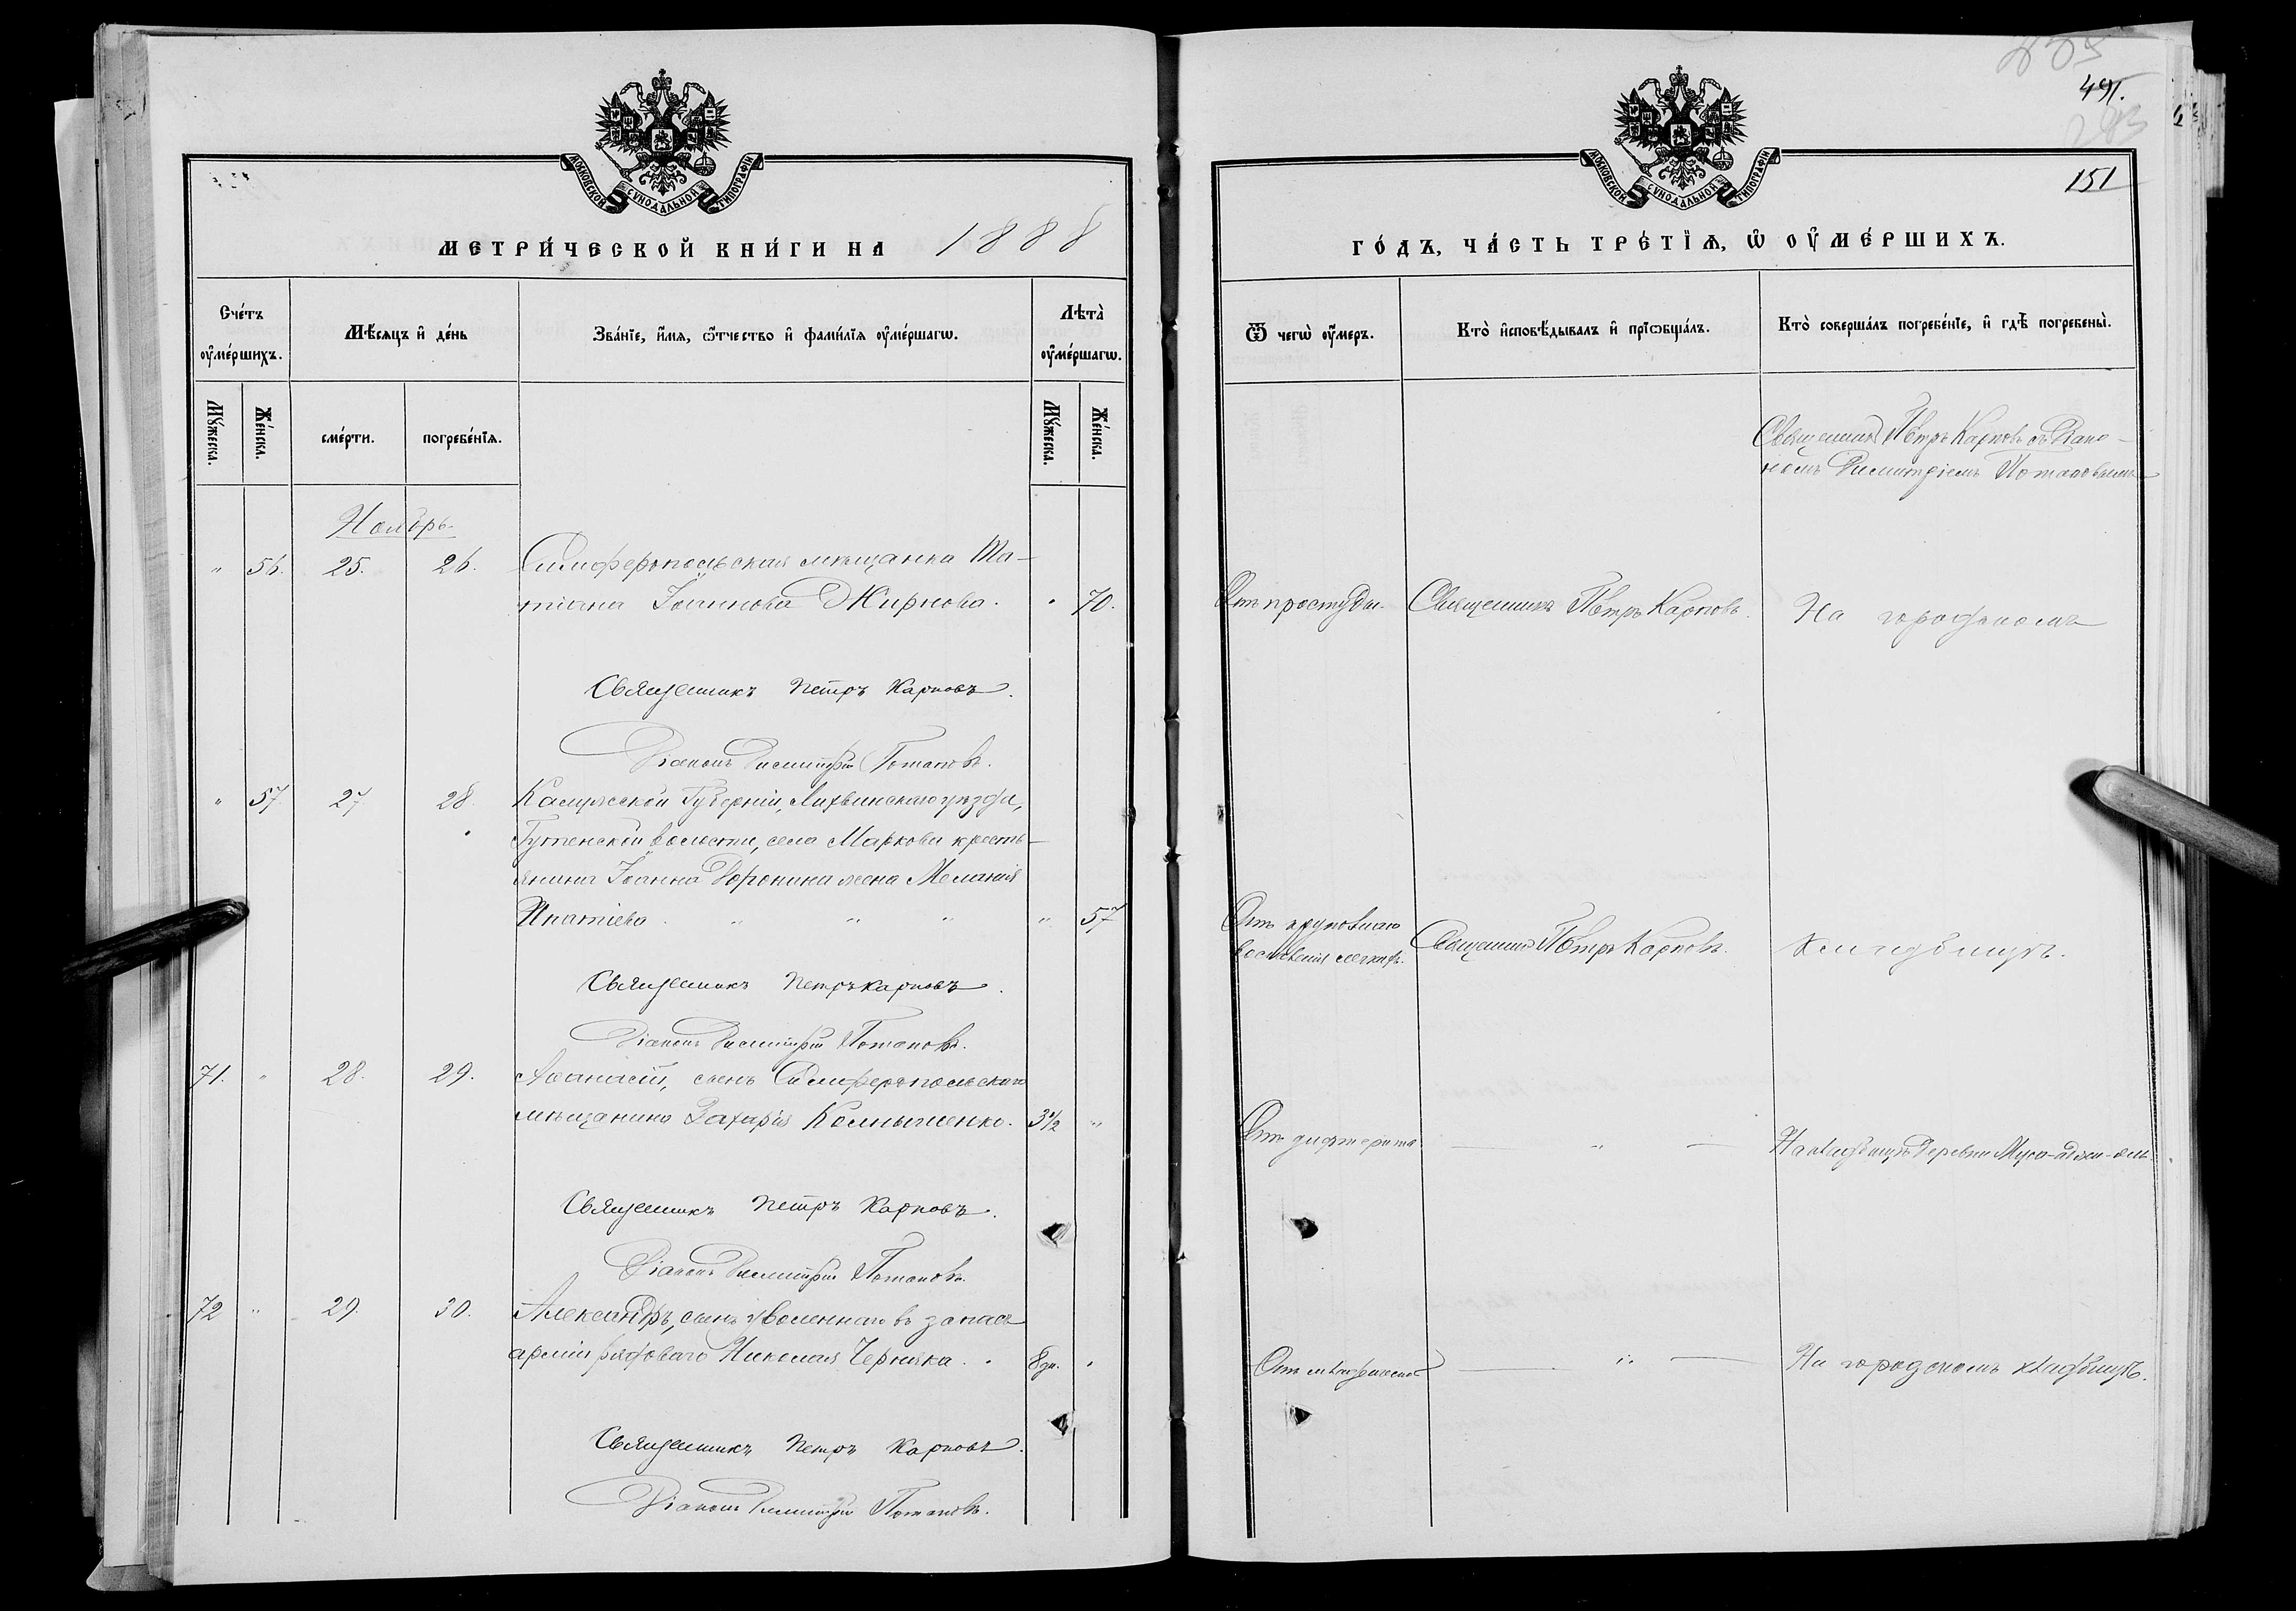 МОСКОВСКОЙ СѴНОДАЛЬНОЙ ТИПОГРАФІИ
МЕТРИ́ЧЕСКОЙ КНИ́ГИ НА 1888
Сче́тъ оу҆ме́ршихъ.
Мѣ́сяцъ и҆ де́нь
Зва́нїе, и҆́мя, ѻ҆́тчество и҆ фами́лїя оу҆ме́ршагѡ.
Лѣта̀ оу҆ме́ршагѡ.
Мꙋ́жеска.
Же́нска.
сме́рти.
погребе́нїѧ.
Мꙋ́жеска.
Же́нска.
Ноябрь.
" 56. 25. 26. Симферопольская мѣщанка Та-
тіана Іоаннова Жирнова. " 70.
Священникъ Петръ Карповъ.
Діаконъ Димитрій Потаповъ.
" 57. 27. 28. Калужской Губерніи, Лихвинскаго уѣзда,
волости, села Маркова кресть-
янина Іоанна Воронина жена Меланія
Ипатіева " " " " 57
Священникъ Петръ Карповъ.
Діаконъ Димитрій Потаповъ.
71. " 28. 29. Аѳанасій, сынъ Симферопольскаго
мѣщанина Захарія 3½ "
Священникъ Петръ Карповъ.
Діаконъ Димитрій Потаповъ.
72 " 29. 30. Александръ, сынъ уволеннаго въ запасъ
арміи рядоваго Николая Черняка. 8 дн. "
Священникъ Петръ Карповъ.
Діаконъ Димитрій Потаповъ.
491.
151
МОСКОВСКОЙ СѴНОДАЛЬНОЙ ТИПОГРАФІИ
ГО́ДЪ, ЧА́СТЬ ТРЕ́ТЇѦ, Ѡ҆ ОУ҆МЕ́РШИХЪ.
Ѿ чегѡ̀ оу҆́меръ.
Кто̀ и҆сповѣ́дывалъ и҆ прїѡбща́лъ.
Кто̀ соверша́лъ погребе́нїе, и҆ гдѣ̀ погребены̀.
Священникъ Петръ Карповъ съ Діако-
номъ Димитріемъ Потаповымъ
Отъ простуды. Священникъ Петръ Карповъ. На городскомъ
Отъ крупознаго
воспаленія легкихъ. Священникъ Петръ Карповъ. кладбищѣ.
Отъ дифтерита — " — На кладбищѣ деревни
Отъ младенческой — " — На городскомъ кладбищѣ.